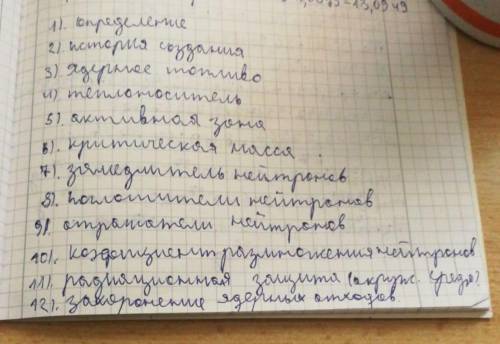 1). определение
2). история создания
3). ядерное топливо
4). теплоноситель
5). активная зона
6). критическая масса.
7). замедлитель нейтронов
8). поглотители нейтронов
9). отражатели нейтронов
10). коэфициент размножения нейтронов
11). радиационная защита (окруж. среды)
12). захоронение ядерных отходов